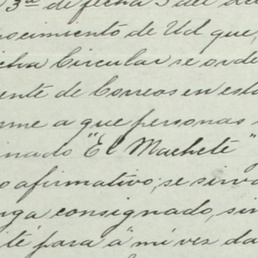 3ª de fecha 3 del
ocimiento de Ud que,
cha Circular se orde
ente de Correos en est
me a que personas
inado "El Machete"
o afirmativo, se sirv
ga consignado, sin
ité para á mi vez da